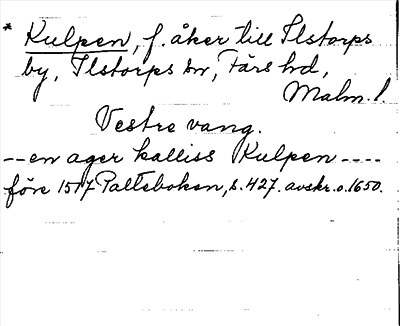 * Kulpen, f. åker till Ilstorps
by, Ilstorps sn, Färs hd,
Malm. l.
Vestre vang.
-- en ager kalliss Kulpen ----
före 1517 Palteboken, s. 427. avskr. o. 1650.